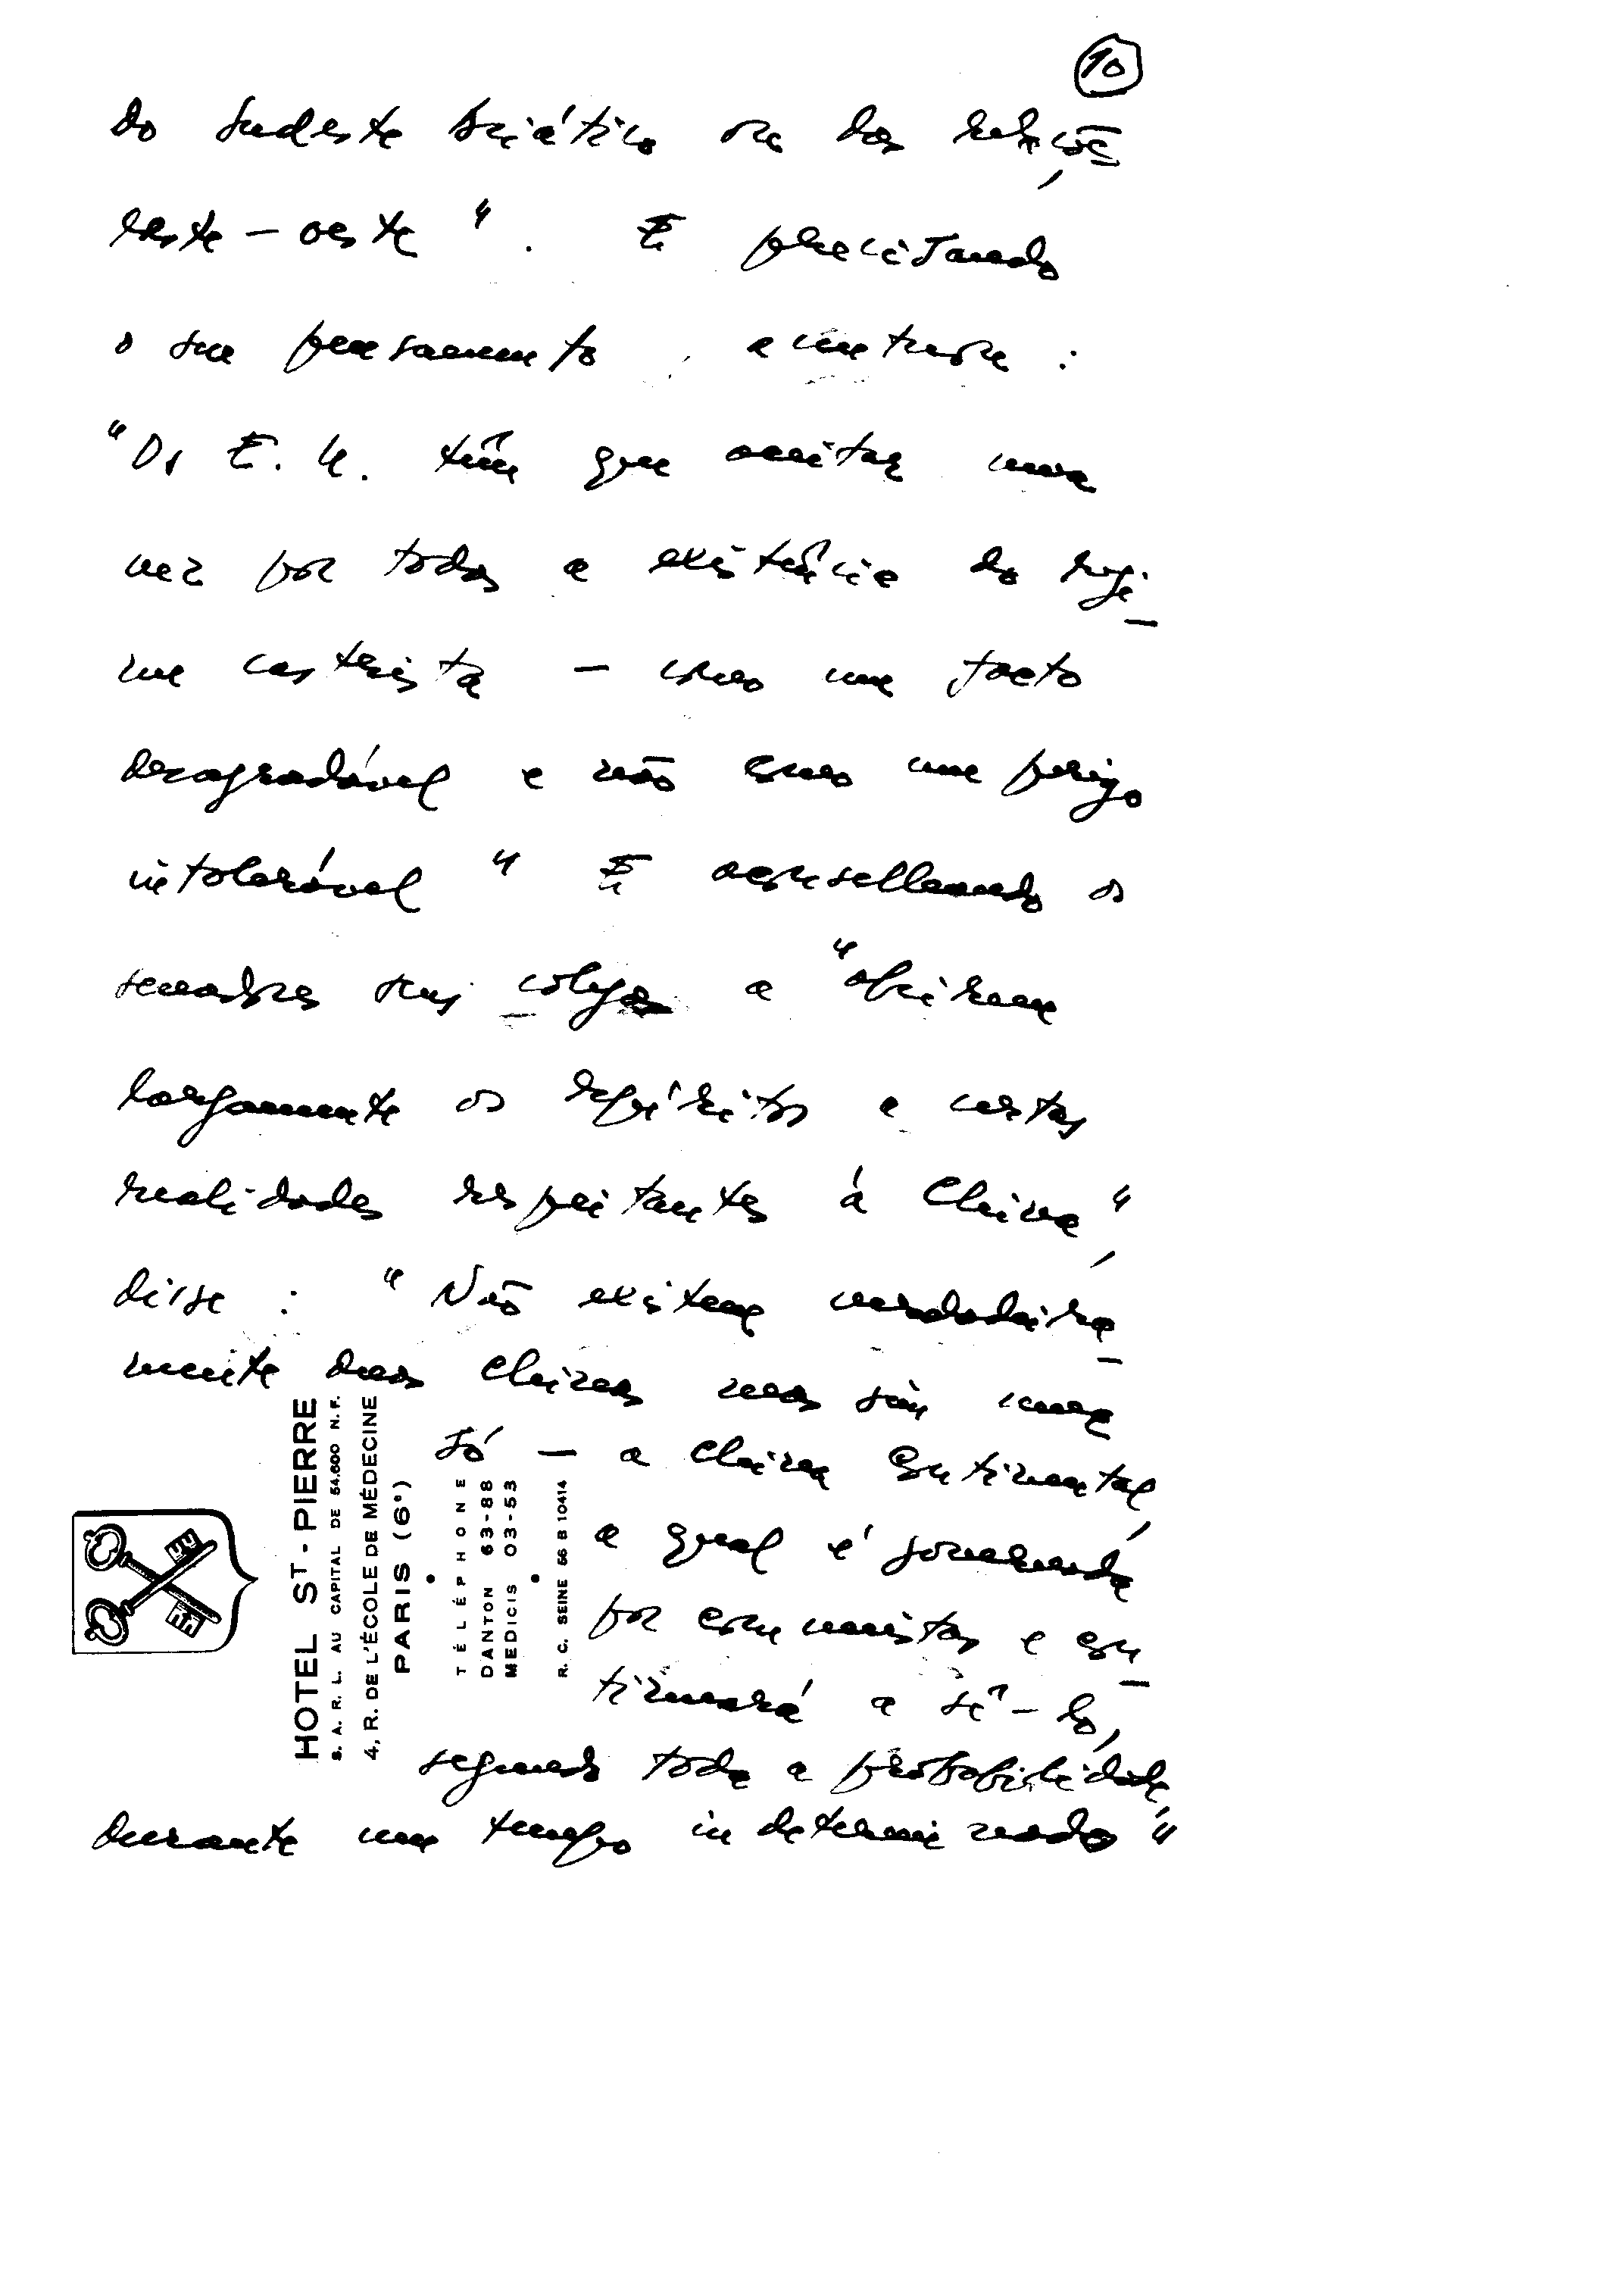 10
do sudeste asiático ou das relações
leste-oeste". E precisando
o seu pensamento, acentuou:
"Os E. U. têm que aceitar uma
vez por todas a existência do regi-
me castrista – como um facto
desagradável e não como um perigo
intolerável" E aconselhando os
senadores seus colegas a "abrirem
largamente os espíritos a certas
realidades respeitantes à China",
disse: "Não existem verdadeira-
mente duas Chinas mas sim uma
só – a China Continental,
a qual é governada
por comunistas e con-
tinuará a sê-lo,
segundo toda a probabilidade,
durante um tempo indeterminado"
HOTEL ST-PIERRE
S. A. R. L. AU CAPITAL DE 54.600 N. F.
4, R. DE L'ÉCOLE DE MÉDECINE
PARIS (6e)
TÉLÉPHONE
DANTON 63-88
MEDICIS 03-53
R. C. SEINE 56 B 10414